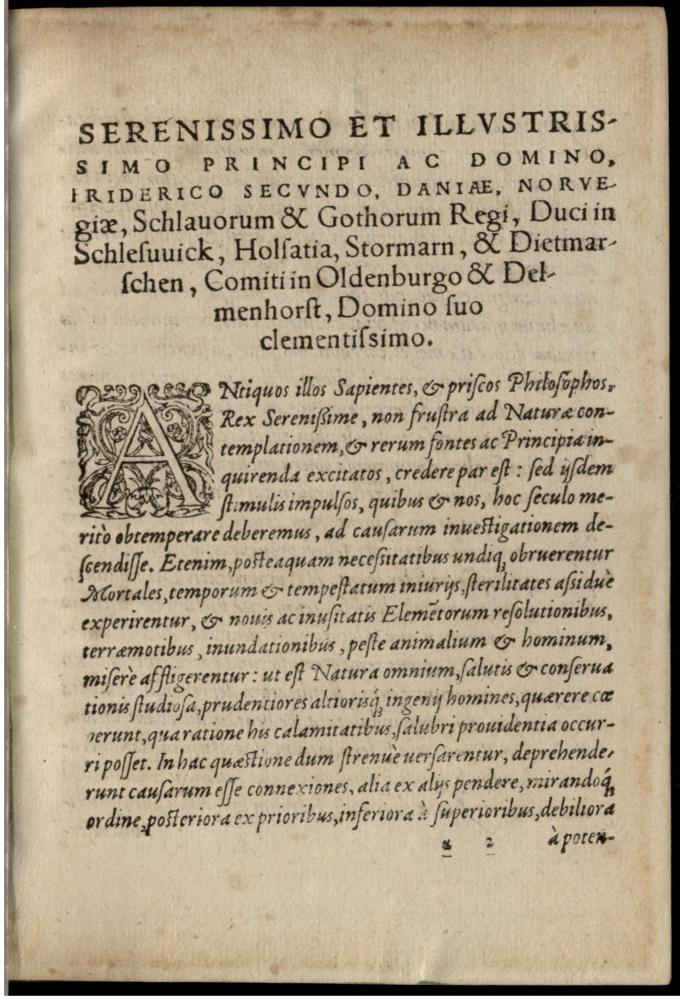 SERENISSIMO ET ILLVSTRIS-
SIMO PRINCIPI AC DOMINO,
FRIDERICO SECVNDO, DANIAE, NORVE-
giæ, Schlauorum & Gothorum Regi, Duci in
Schleſuuick, Holſatia, Stormarn, & Dietmar-
ſchen, Comiti in Oldenburgo & Del-
menhorſt, Domino ſuo
clementiſsimo.
ANtiquos illos Sapientes, & priſcos Philoſophos,
Rex Sereniſsime, non fruſtra ad Naturæ con-
templationem, & rerum fontes ac Principia in-
quirenda excitatos, credere par eſt: ſed ijſdem
ſtimulis impulſos, quibus & nos, hoc ſeculo me-
ritò obtemperare deberemus, ad cauſarum inueſtigationem de-
ſcendiſſe. Etenim, poſteaquam neceſsitatibus undiq; obruerentur
Mortales, temporum & tempeſtatum iniurijs, ſterilitates aſsiduè
experirentur, & nouis ac inuſitatis Elemẽtorum reſolutionibus,
terræmotibus, inundationibus, peſte animalium & hominum,
miſerè affligerentur: ut eſt Natura omnium, ſalutis & conſerua
tionis ſtudioſa, prudentiores altiorisq́; ingenij homines, quærere cœ
perunt, qua ratione his calamitatibus, ſalubri prouidentia occur-
ri poſſet. In hac quæſtione dum ſtrenuè uerſarentur, deprehende-
runt cauſarum eſſe connexiones, alia ex alijs pendere, mirandoq́;
ordine, poſteriora ex prioribus, inferiora à ſuperioribus, debiliora
2
à poten-